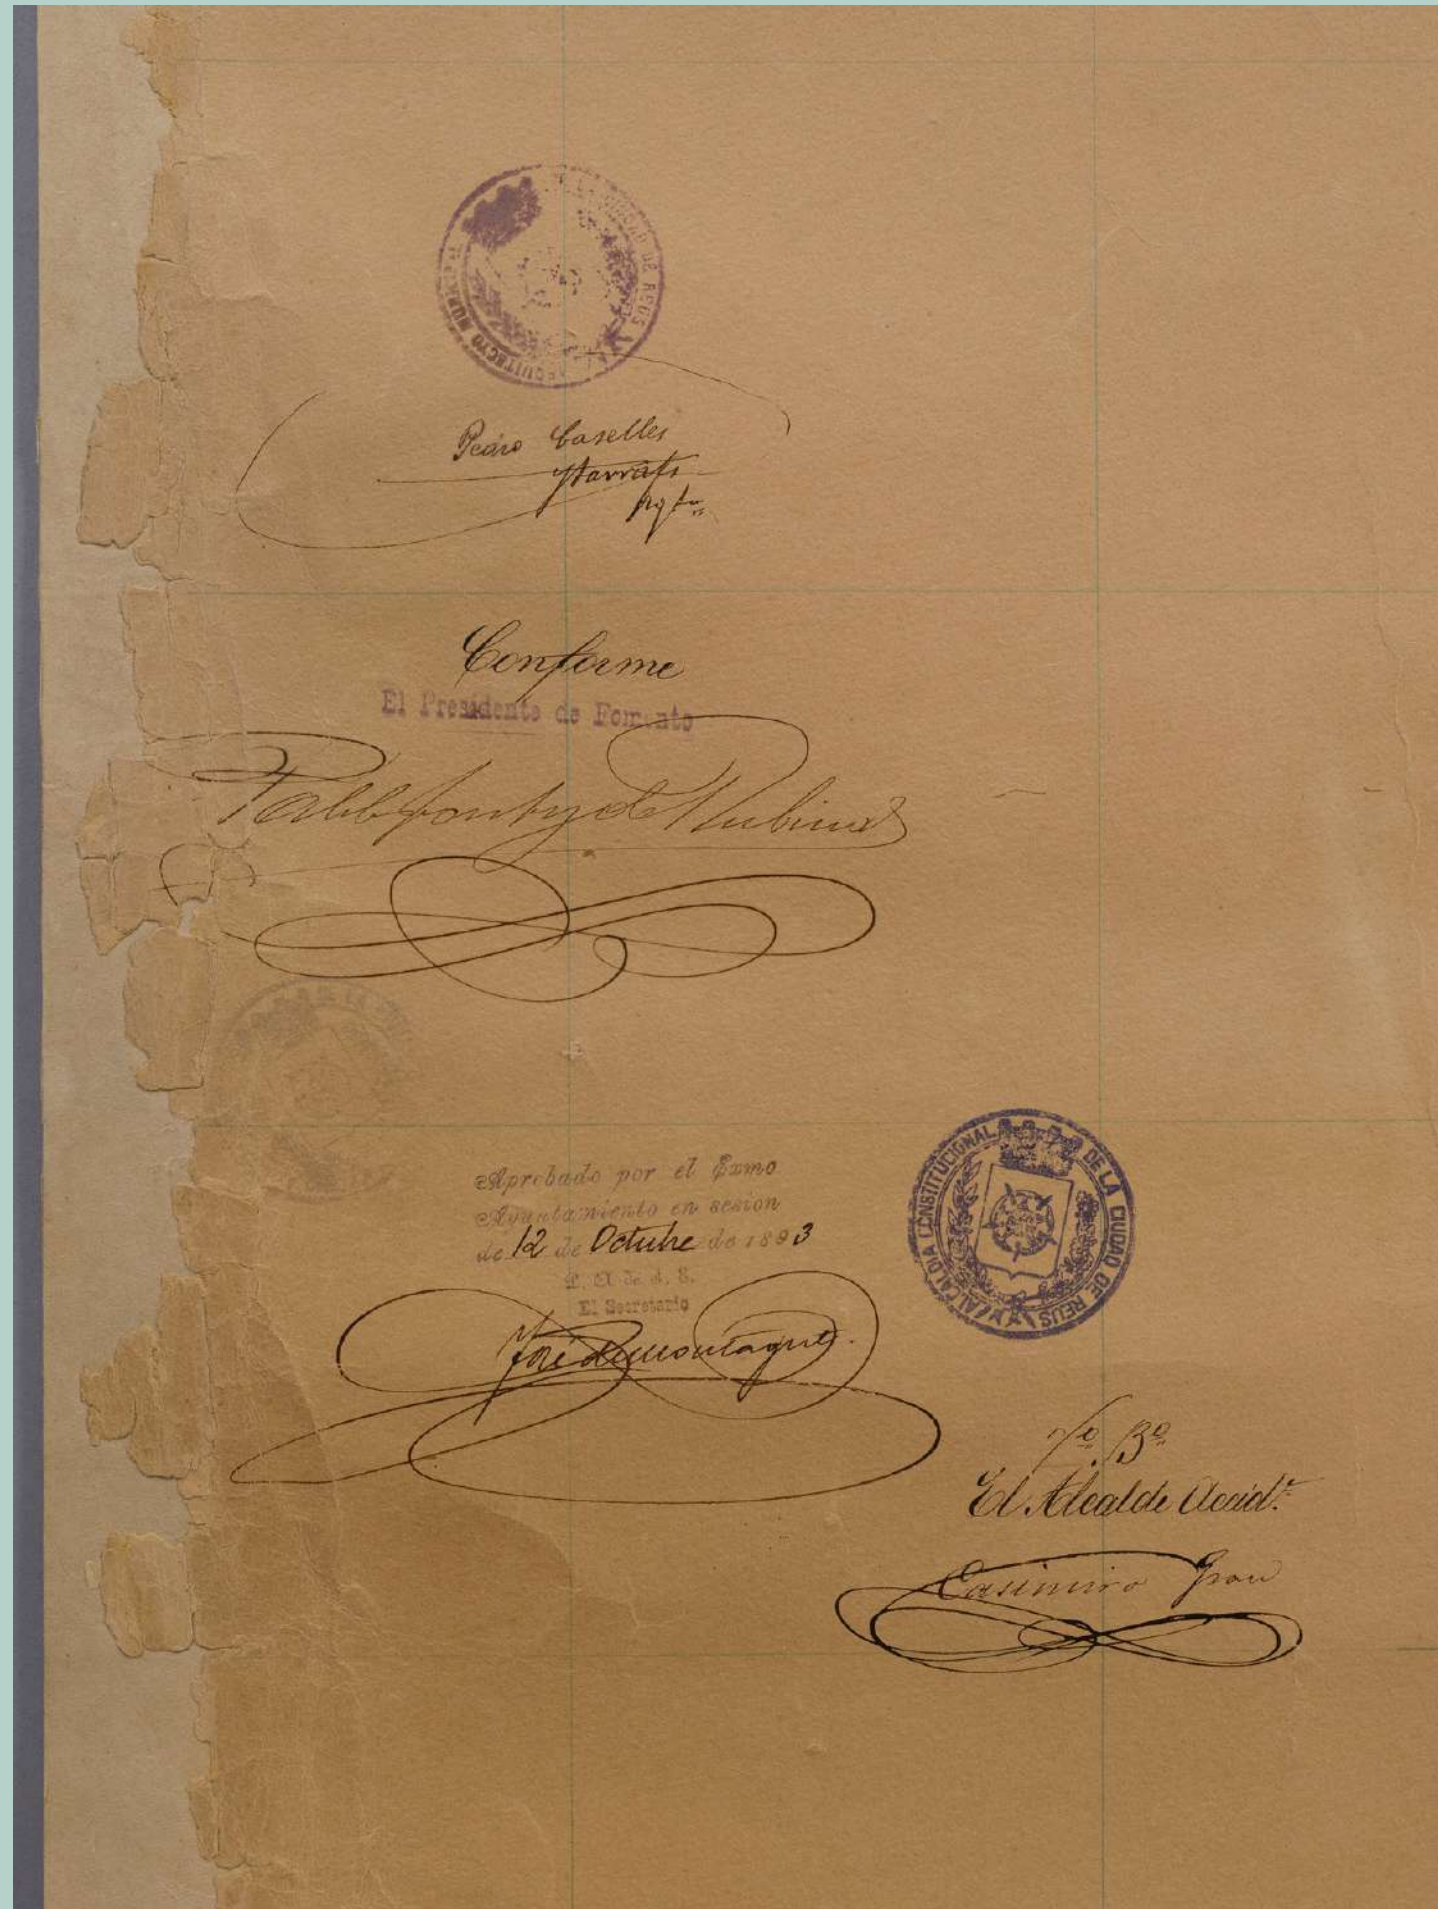 DE LA CIUDAD DE REUS
ARQUITECTO MUNICIPAL
Pedro Caselles
y Tarrats
Arqto
Conforme
El Presidente de Fomento
Pablo Font de Rubinat
Aprobado por el Exmo.
Ayuntamiento en sesion
de 12 de Octubre de 1893
P. A. de d. S.
El Secretario
José de Montagut.
ALCALDIA CONSTITUCIONAL DE LA CIUDAD DE REUS
Vº Bº
El Alcalde Accidl.
Casimiro Grau